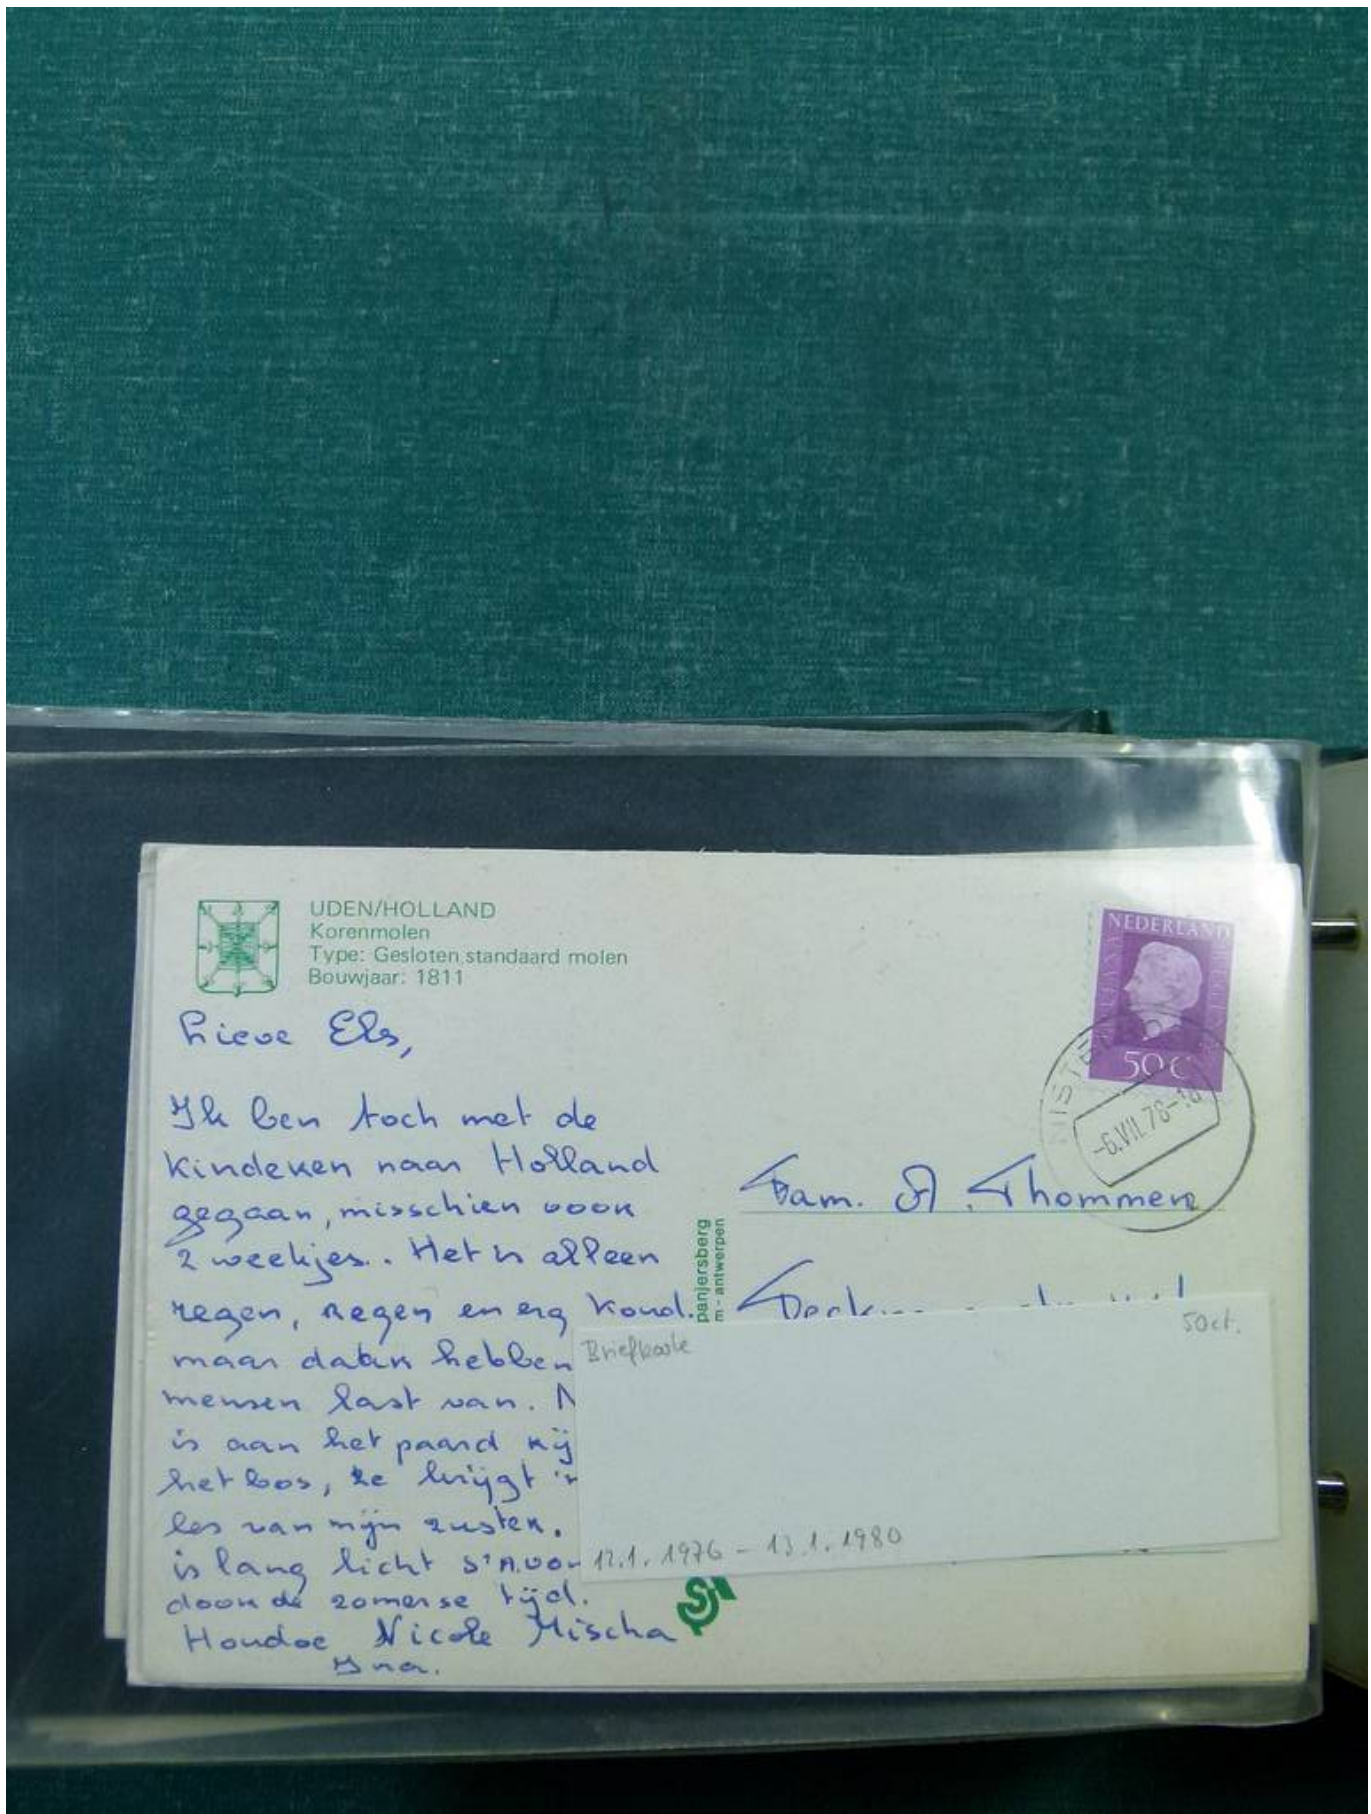 UDEN/HOLLAND
Korenmolen
Type: Gesloten standaard molen
Bouwjaar: 1811
Lieve Els,
Ik ben toch met de
kinderen naar Holland
gegaan, misschien voor
2 weekjes.. Het is alleen
regen, regen en erg koud.
maar hebben
mensen last van.
is aan het paard rij
het bos, ze krijgt
les van mijn zuster.
is lang licht s'Avon
door de zomerse tijd.
Houdoe Nicole Mischa
Ina.
panjersberg
m - antwerpen
NEDERLAND
50 c
NISTE
-6.VII.78-18
Fam. A. Thommen
Briefkaarte
50ct.
12.1.1976 - 13.1.1980